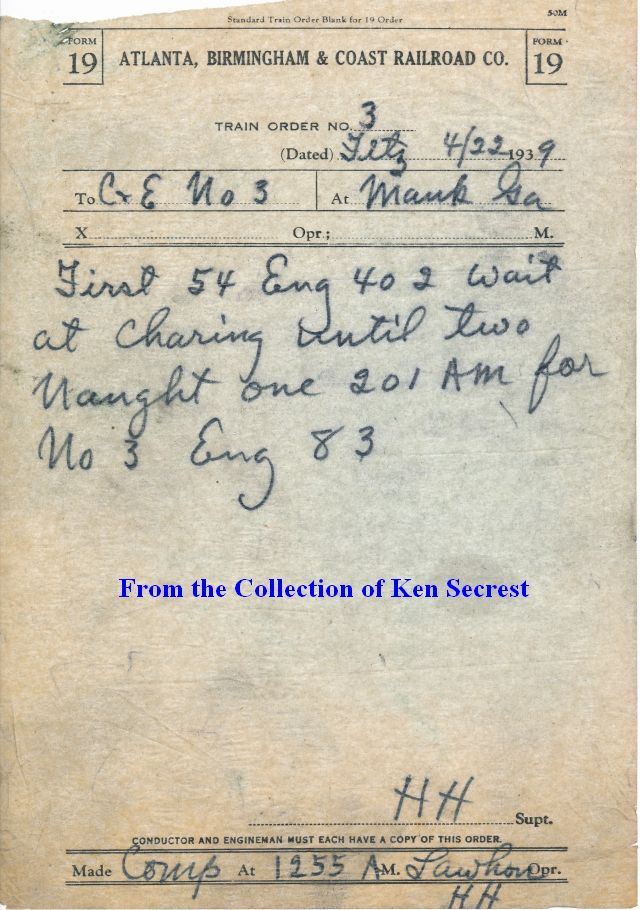 Standard Train Order Blank for 19 Order 50M
FORM 19 ATLANTA, BIRMINGHAM & COAST RAILROAD CO. FORM 19
TRAIN ORDER NO. 3
(Dated) 4/22 1939
To C & E No 3 At Mauk Ga
X Opr.; M.
First 54 Eng 402 wait
at Charing until two
naught one 201 AM for
No 3 Eng 83
From the Collection of Ken Secrest
HH Supt.
CONDUCTOR AND ENGINEMAN MUST EACH HAVE A COPY OF THIS ORDER.
Made Comp At 1255 AM. Lawhon Opr.
HH